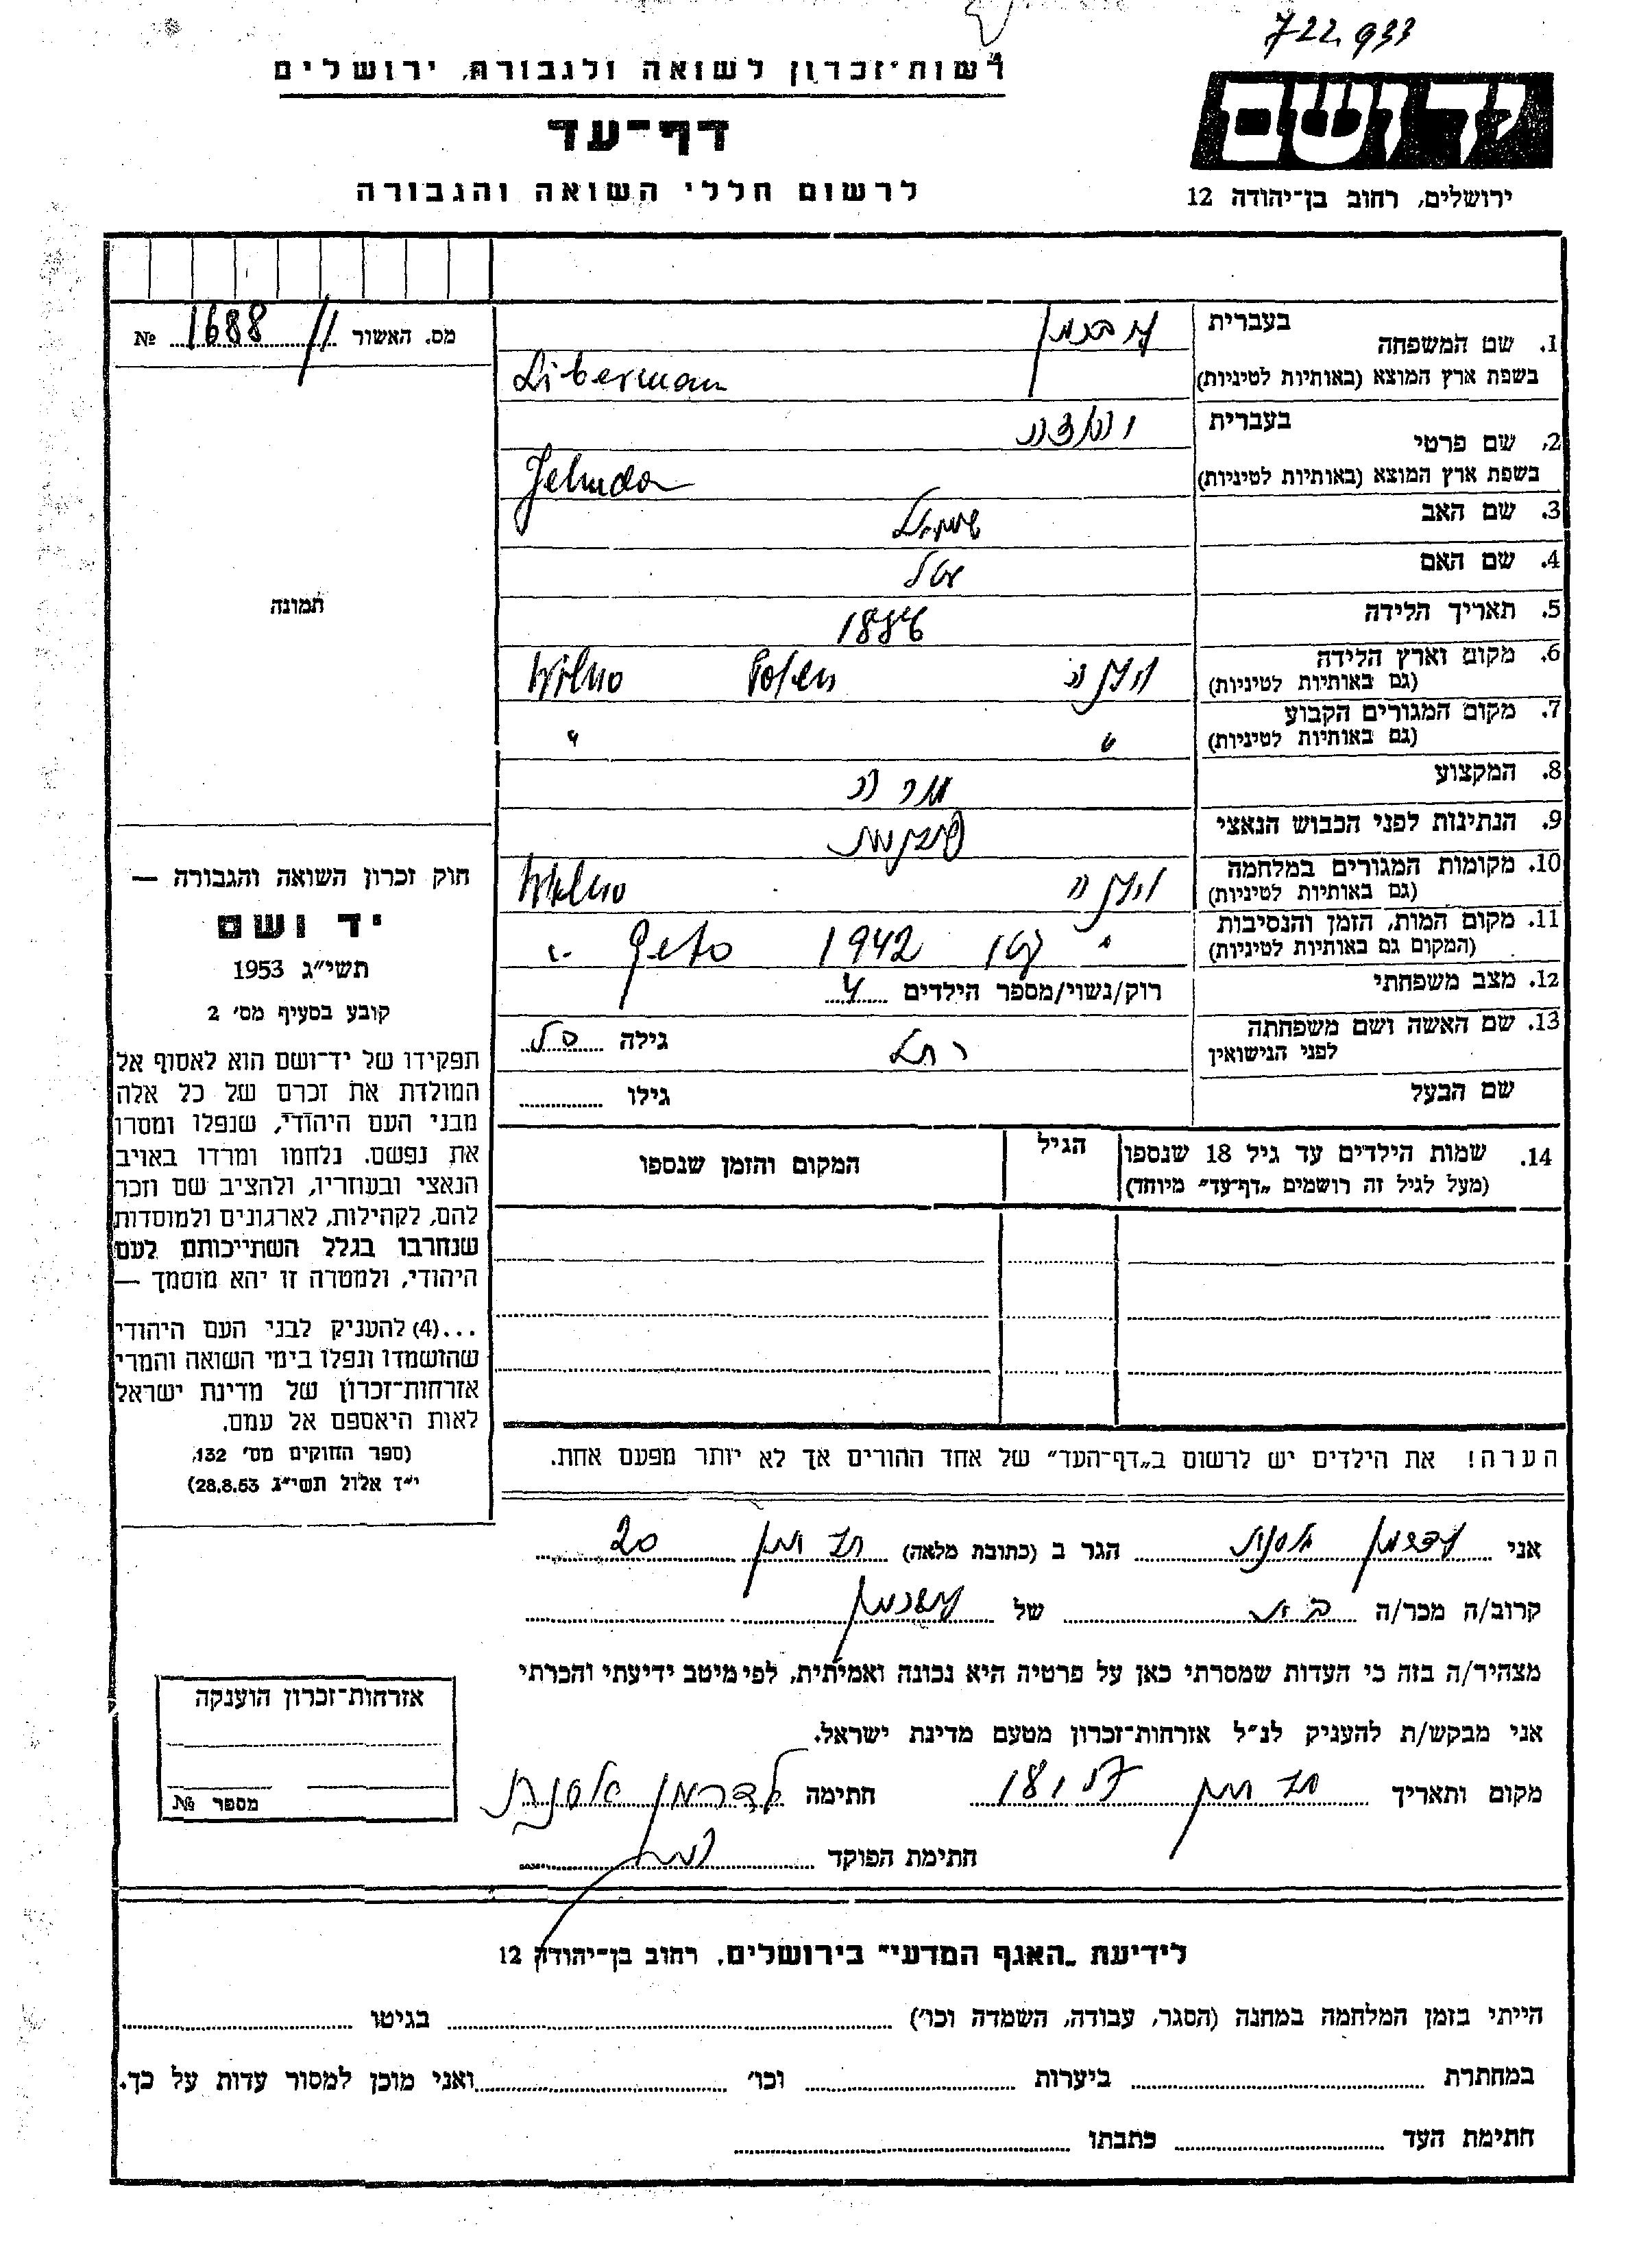 722933
רשות־זכרון לשואה ולגבורה, ירושלים
יד ושם
דף־עד
לרשום חללי השואה והגבורה
ירושלים, רחוב בן־יהודה 12
מס. האשור 1688 №
1. שם המשפחה בעברית ליברמן
בשפת ארץ המוצא (באותיות לטיניות) Liberman
2. שם פרטי בעברית יהודה
בשפת ארץ המוצא (באותיות לטיניות) Jehuda
3. שם האב
4. שם האם
5. תאריך הלידה 1886
6. מקום וארץ הלידה (גם באותיות לטיניות) וילנה Polen Wilno
7. מקום המגורים הקבוע (גם באותיות לטיניות) " "
8. המקצוע
9. הנתינות לפני הכבוש הנאצי
10. מקומות המגורים במלחמה (גם באותיות לטיניות) וילנה Wilno
11. מקום המות, הזמן והנסיבות (המקום גם באותיות לטיניות) " גטו 1942 Geto "
12. מצב משפחתי רוק/נשוי/מספר הילדים 4
13. שם האשה ושם משפחתה לפני הנישואין רחל גילה
שם הבעל גילו
14. שמות הילדים עד גיל 18 שנספו (מעל לגיל זה רושמים „דף־עד” מיוחד) הגיל המקום והזמן שנספו
הערה! את הילדים יש לרשום ב„דף־העד” של אחד ההורים אך לא יותר מפעם אחת.
תמונה
חוק זכרון השואה והגבורה —
יד ושם
תשי״ג 1953
קובע בסעיף מס׳ 2
תפקידו של יד־ושם הוא לאסוף אל
המולדת את זכרם של כל אלה
מבני העם היהודי, שנפלו ומסרו
את נפשם. נלחמו ומרדו באויב
הנאצי ובעוזריו, ולהציב שם וזכר
להם, לקהילות, לארגונים ולמוסדות
שנחרבו בגלל השתייכותם לעם
היהודי, ולמטרה זו יהא מוסמך —
...(4) להעניק לבני העם היהודי
שהושמדו ונפלו בימי השואה והמרי
אזרחות־זכרון של מדינת ישראל
לאות היאספם אל עמם.
(ספר החוקים מס׳ 132,
י״ז אלול תשי״ג 28.8.53)
אני ליברמן אסנת הגר ב (כתובת מלאה) 20
קרוב/ה מכר/ה של ליברמן
מצהיר/ה בזה כי העדות שמסרתי כאן על פרטיה היא נכונה ואמיתית, לפי מיטב ידיעתי והכרתי
אני מבקש/ת להעניק לנ״ל אזרחות־זכרון מטעם מדינת ישראל.
מקום ותאריך חתימה ליברמן אסנת
חתימת הפוקד
אזרחות־זכרון הוענקה
מספר №
לידיעת „האגף המדעי” בירושלים, רחוב בן־יהודה 12
הייתי בזמן המלחמה במחנה (הסגר, עבודה, השמדה וכו׳) בגיטו
במחתרת ביערות וכו׳ ואני מוכן למסור עדות על כך.
חתימת העד כתבתו